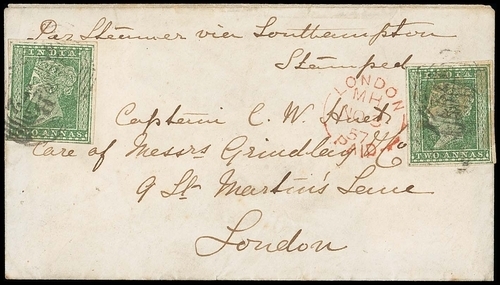 Per Steamer via Southampton
Stamped
INDIA
TWO ANNAS
INDIA
TWO ANNAS
LONDON
MH
57
PAID
Captain C. W.
Care of Messrs Grindlay & Co
9 St. Martin's Lane
London